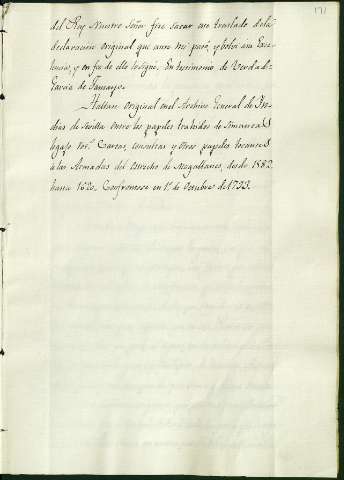 171
del Rey Nuestro Señor fize sacar este traslado dela
declaracion original que ante mi pasó, y bolvi a su Exce
lencia, y en fee de ello lo signe. En testimonio de Verdad=
Garcia de Tamayo.
Hallase original en el Archivo General de In-
dias de Sevilla entre los papeles trahidos de Simancas
legajo 10.º Cartas, consultas y otros papeles tocantes
a las Armadas del Estrecho de Magallanes, desde 1582
hasta 1620. Confrontose en 1.º de Octubre de 1793.